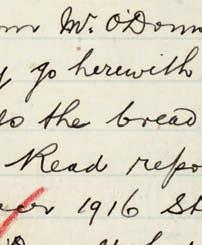 Mr. O'Donn
go herewith
to the bread
Read repo
1916 St